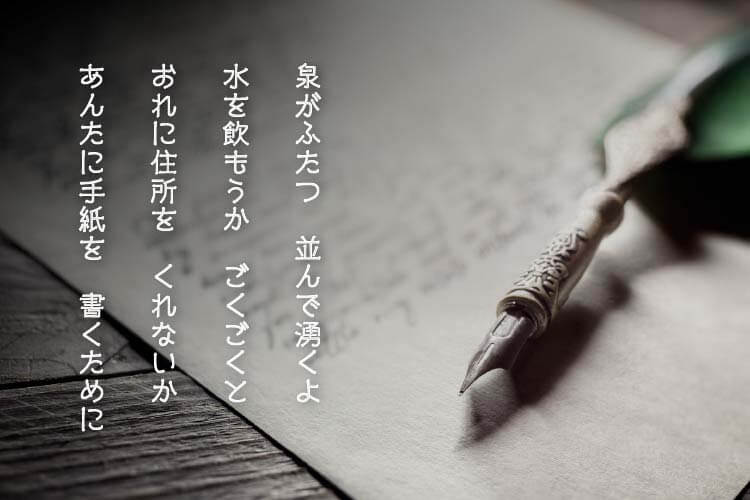 泉がふたつ　並んで湧くよ
水を飲もうか　ごくごくと
おれに住所を　くれないか
あんたに手紙を　書くために